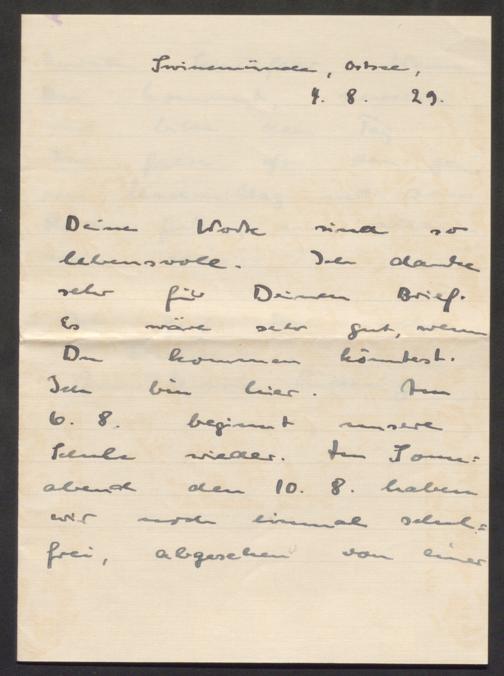 Swinemünde, Ostsee,
4. 8. 29.
Deine Worte sind so
lebensvoll. Ich danke
sehr für Deinen Brief.
Es wäre sehr gut, wenn
Du kommen könntest.
Ich bin hier. Am
6. 8. beginnt unsere
Schule wieder. Am Sonn=
abend den 10. 8. haben
wir noch einmal schul=
frei, abgesehen von einer